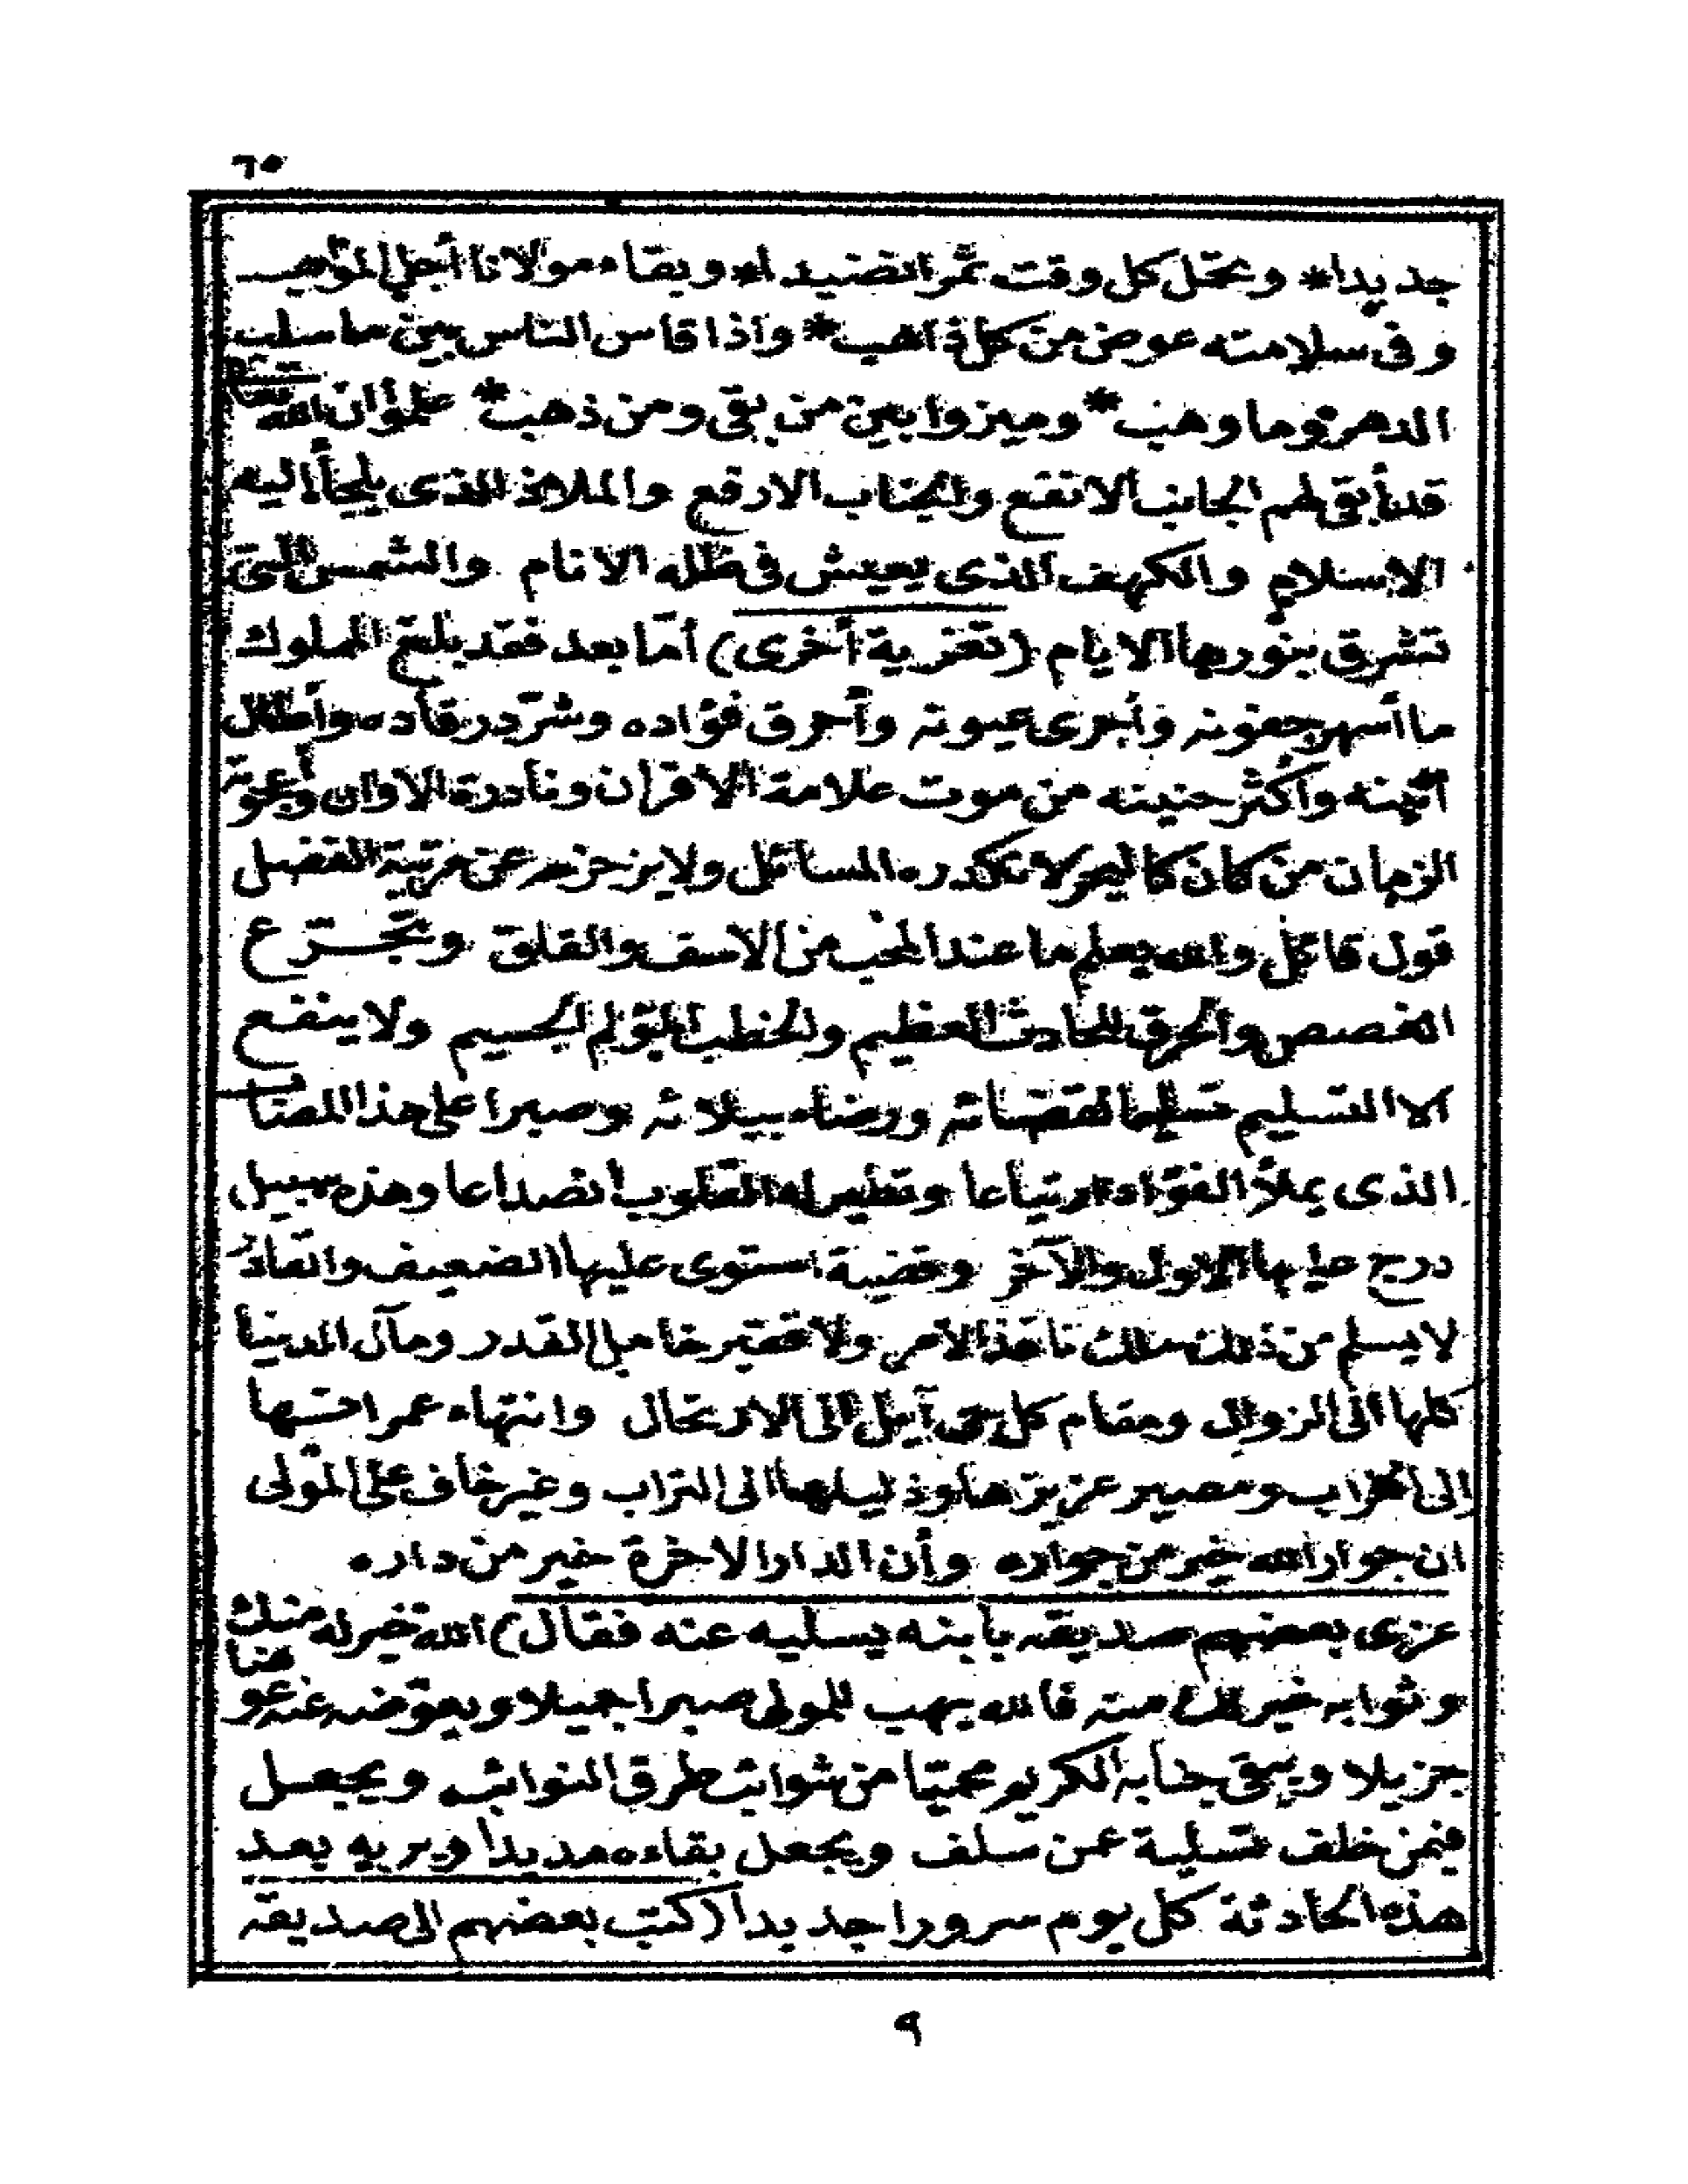 ٦٥
جديدا * وعمل كل وقت ثمرا نضيدا * وبقاء مولانا أجل المواهب
وفى سلامته عوض من كل ذاهب * واذا قاس الناس بين ما سلب
الدهر وما وهب * وميزوا بين من بقى ومن ذهب * علموا أن الله تعالى
قد أبقى لهم الجانب الانفع والجناب الارفع والملاذ الذى يلجأ اليه
الاسلام والكهف الذى يعيش فى ظله الانام والشمس التى
تشرق بنورها الايام (تعزية أخرى) أما بعد فقد بلغ المملوك
ما أسهر جفونه وأجرى عيونه وأحرق فؤاده وشرد رقاده وأطال
أنينه وأكثر حنينه من موت علامة الاقران ونادرة الاوان وأعجوبة
الزمان من كان كالبحر لا تكدره المسائل ولا يزحزحه عن مرتبة الفضل
قول قائل والله يعلم ما عند المحب من الاسف والقلق وتجرع
الغصص والحرق للحادث العظيم والخطب المؤلم الجسيم ولا ينفع
الا التسليم تسليما لقضائه ورضاء ببلائه وصبرا على هذا المصاب
الذى يملأ الفؤاد ارتياعا وتطير له القلوب انصداعا وهذه سبيل
درج عليها الاول والآخر وقضية استوى عليها الضعيف والقادر
لا يسلم من ذلك ملك نافذ الامر ولا فقير خامل القدر ومآل الدنيا
كلها الى الزوال ومقام كل حى آيل الى الارتحال وانتهاء عمرانها
الى الخراب ومصير عزيزها وذليلها الى التراب وغير خاف على المولى
ان جوار الله خير من جواره وأن الدار الاخرة خير من داره
عزى بعضهم صديقه بابنه يسليه عنه فقال) الله خير له منك
وثوابه خير لك منه فالله يهب للمولى صبرا جميلا ويعوضه عنه عوضا
جزيلا ويبقى جنابه الكريم محميا من شوائب طرق النوائب ويجعل
فيمن خلف تسلية عمن سلف ويجعل بقاءه مديدا ويريه بعد
هذه الحادثة كل يوم سرورا جديدا (كتب بعضهم الى صديقه
٩